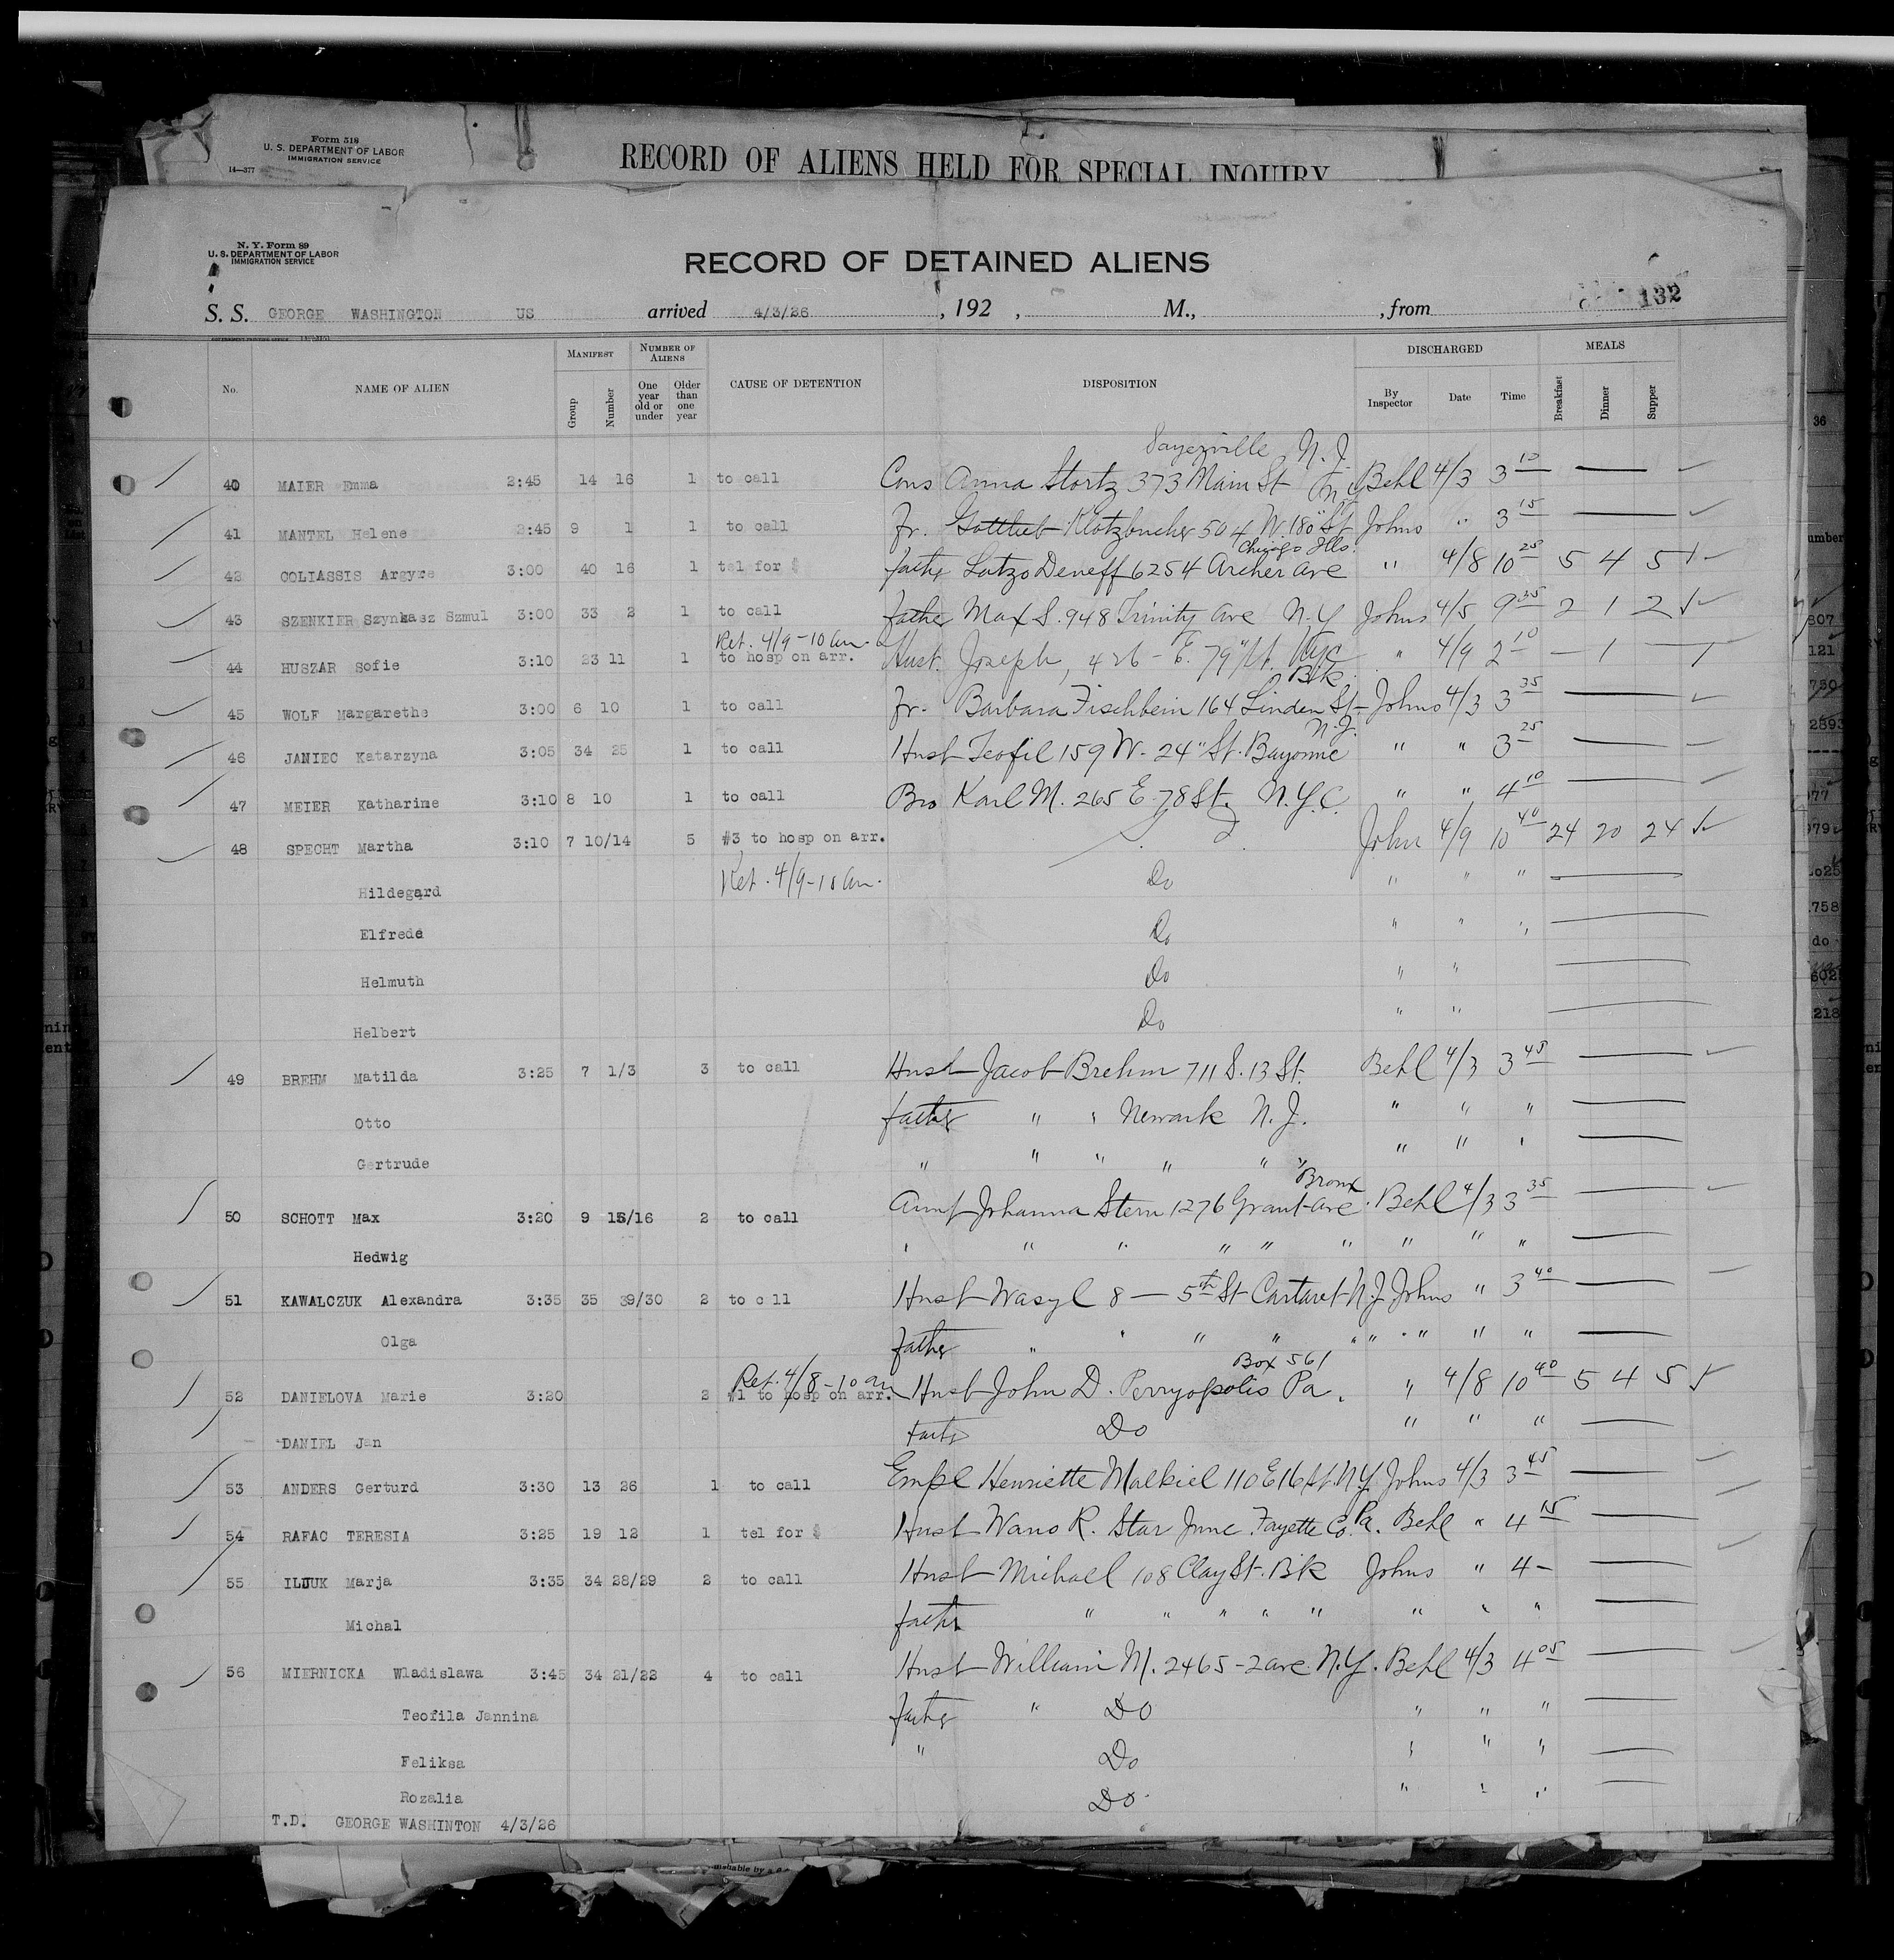 Form 518
U. S. DEPARTMENT OF LABOR
IMMIGRATION SERVICE
14—377
RECORD OF ALIENS HELD FOR SPECIAL INQUIRY
N. Y. Form 89
U. S. DEPARTMENT OF LABOR
IMMIGRATION SERVICE
RECORD OF DETAINED ALIENS
132
S. S. GEORGE WASHINGTON US arrived 4/3/26 , 192 , M., , from
No. NAME OF ALIEN MANIFEST Group Number NUMBER OF ALIENS One year old or under Older than one year CAUSE OF DETENTION DISPOSITION DISCHARGED By Inspector Date Time MEALS Breakfast Dinner Supper
Sayerville N. J.
40 MAIER Emma 2:45 14 16 1 to call Cons Anna Stortz 373 Main St Behl 4/3 3 10
41 MANTEL Helene 2:45 9 1 1 to call Fr. Gottlieb Klotzbucher 504 W. 180" St Johns " 3 15
Chicago Ills.
42 COLIASSIS Argyre 3:00 40 16 1 tel for $ father Lotzo Deneff 6254 Archer Ave " 4/8 10 25 5 4 5
43 SZENKIER Szynkasz Szmul 3:00 33 2 1 to call father Max S. 948 Trinity Ave N.Y Johns 4/5 9 35 2 1 2
Ret. 4/9-10 am
44 HUSZAR Sofie 3:10 23 11 1 to hosp on arr. Hust. Joseph, 426 - E. 79" St. NYC " 4/9 2 10 — 1 —
Blk.
45 WOLF Margarethe 3:00 6 10 1 to call Fr. Barbara Fischbein 164 Linden St Johns 4/3 3 35
N.J.
46 JANIEC Katarzyna 3:05 34 25 1 to call Hust Teofil 159 W. 24" St. Bayonne " " 3 25
47 MEIER Katharine 3:10 8 10 1 to call Bro Karl M. 265 E. 78 St. N.Y.C. " " 4 10
48 SPECHT Martha 3:10 7 10/14 5 #3 to hosp on arr. John 4/9 10 40 24 20 24
Hildegard Ret. 4/9-10 am. Do " " "
Elfrede Do " " "
Helmuth Do " "
Helbert Do " "
49 BREHM Matilda 3:25 7 1/3 3 to call Hust Jacob Brehm 711 S. 13 St. Behl 4/3 3 45
Otto father " " Newark N. J. " " "
Gertrude " " " " " " " " "
Bronx
50 SCHOTT Max 3:20 9 15/16 2 to call Aunt Johanna Stern 1276 Grant Ave. Behl 4/3 3 35
Hedwig " " " " " " " " "
51 KAWALCZUK Alexandra 3:35 35 29/30 2 to c ll Hust Wasyl 8 — 5th St Cartaret N.J Johns " 3 40
Olga father " " " " " " " " "
Ret. 4/8-10 am Box 561
52 DANIELOVA Marie 3:20 2 #1 to hosp on arr. Hust John D. Perryopolis Pa. " 4/8 10 40 5 4 5
DANIEL Jan father Do " " "
53 ANDERS Gerturd 3:30 13 26 1 to call Empl Henriette Malkiel 110 E 16 St. N.Y. Johns 4/3 3 45
54 RAFAC TERESIA 3:25 19 12 1 tel for $ Hust Wano R. Star Junc. Fayette Co. Pa. Behl " 4 15
55 ILJUK Marja 3:35 34 28/29 2 to call Hust Michael 108 Clay St. Blk Johns " 4 -
Michal father " " " " " " " "
56 MIERNICKA Wladislawa 3:45 34 21/22 4 to call Hust William M. 2465 - 2 ave. N.Y. Behl 4/3 4 05
Teofila Jannina father " Do " " "
Feliksa " Do " " "
Rozalia Do " " "
T.D. GEORGE WASHINTON 4/3/26